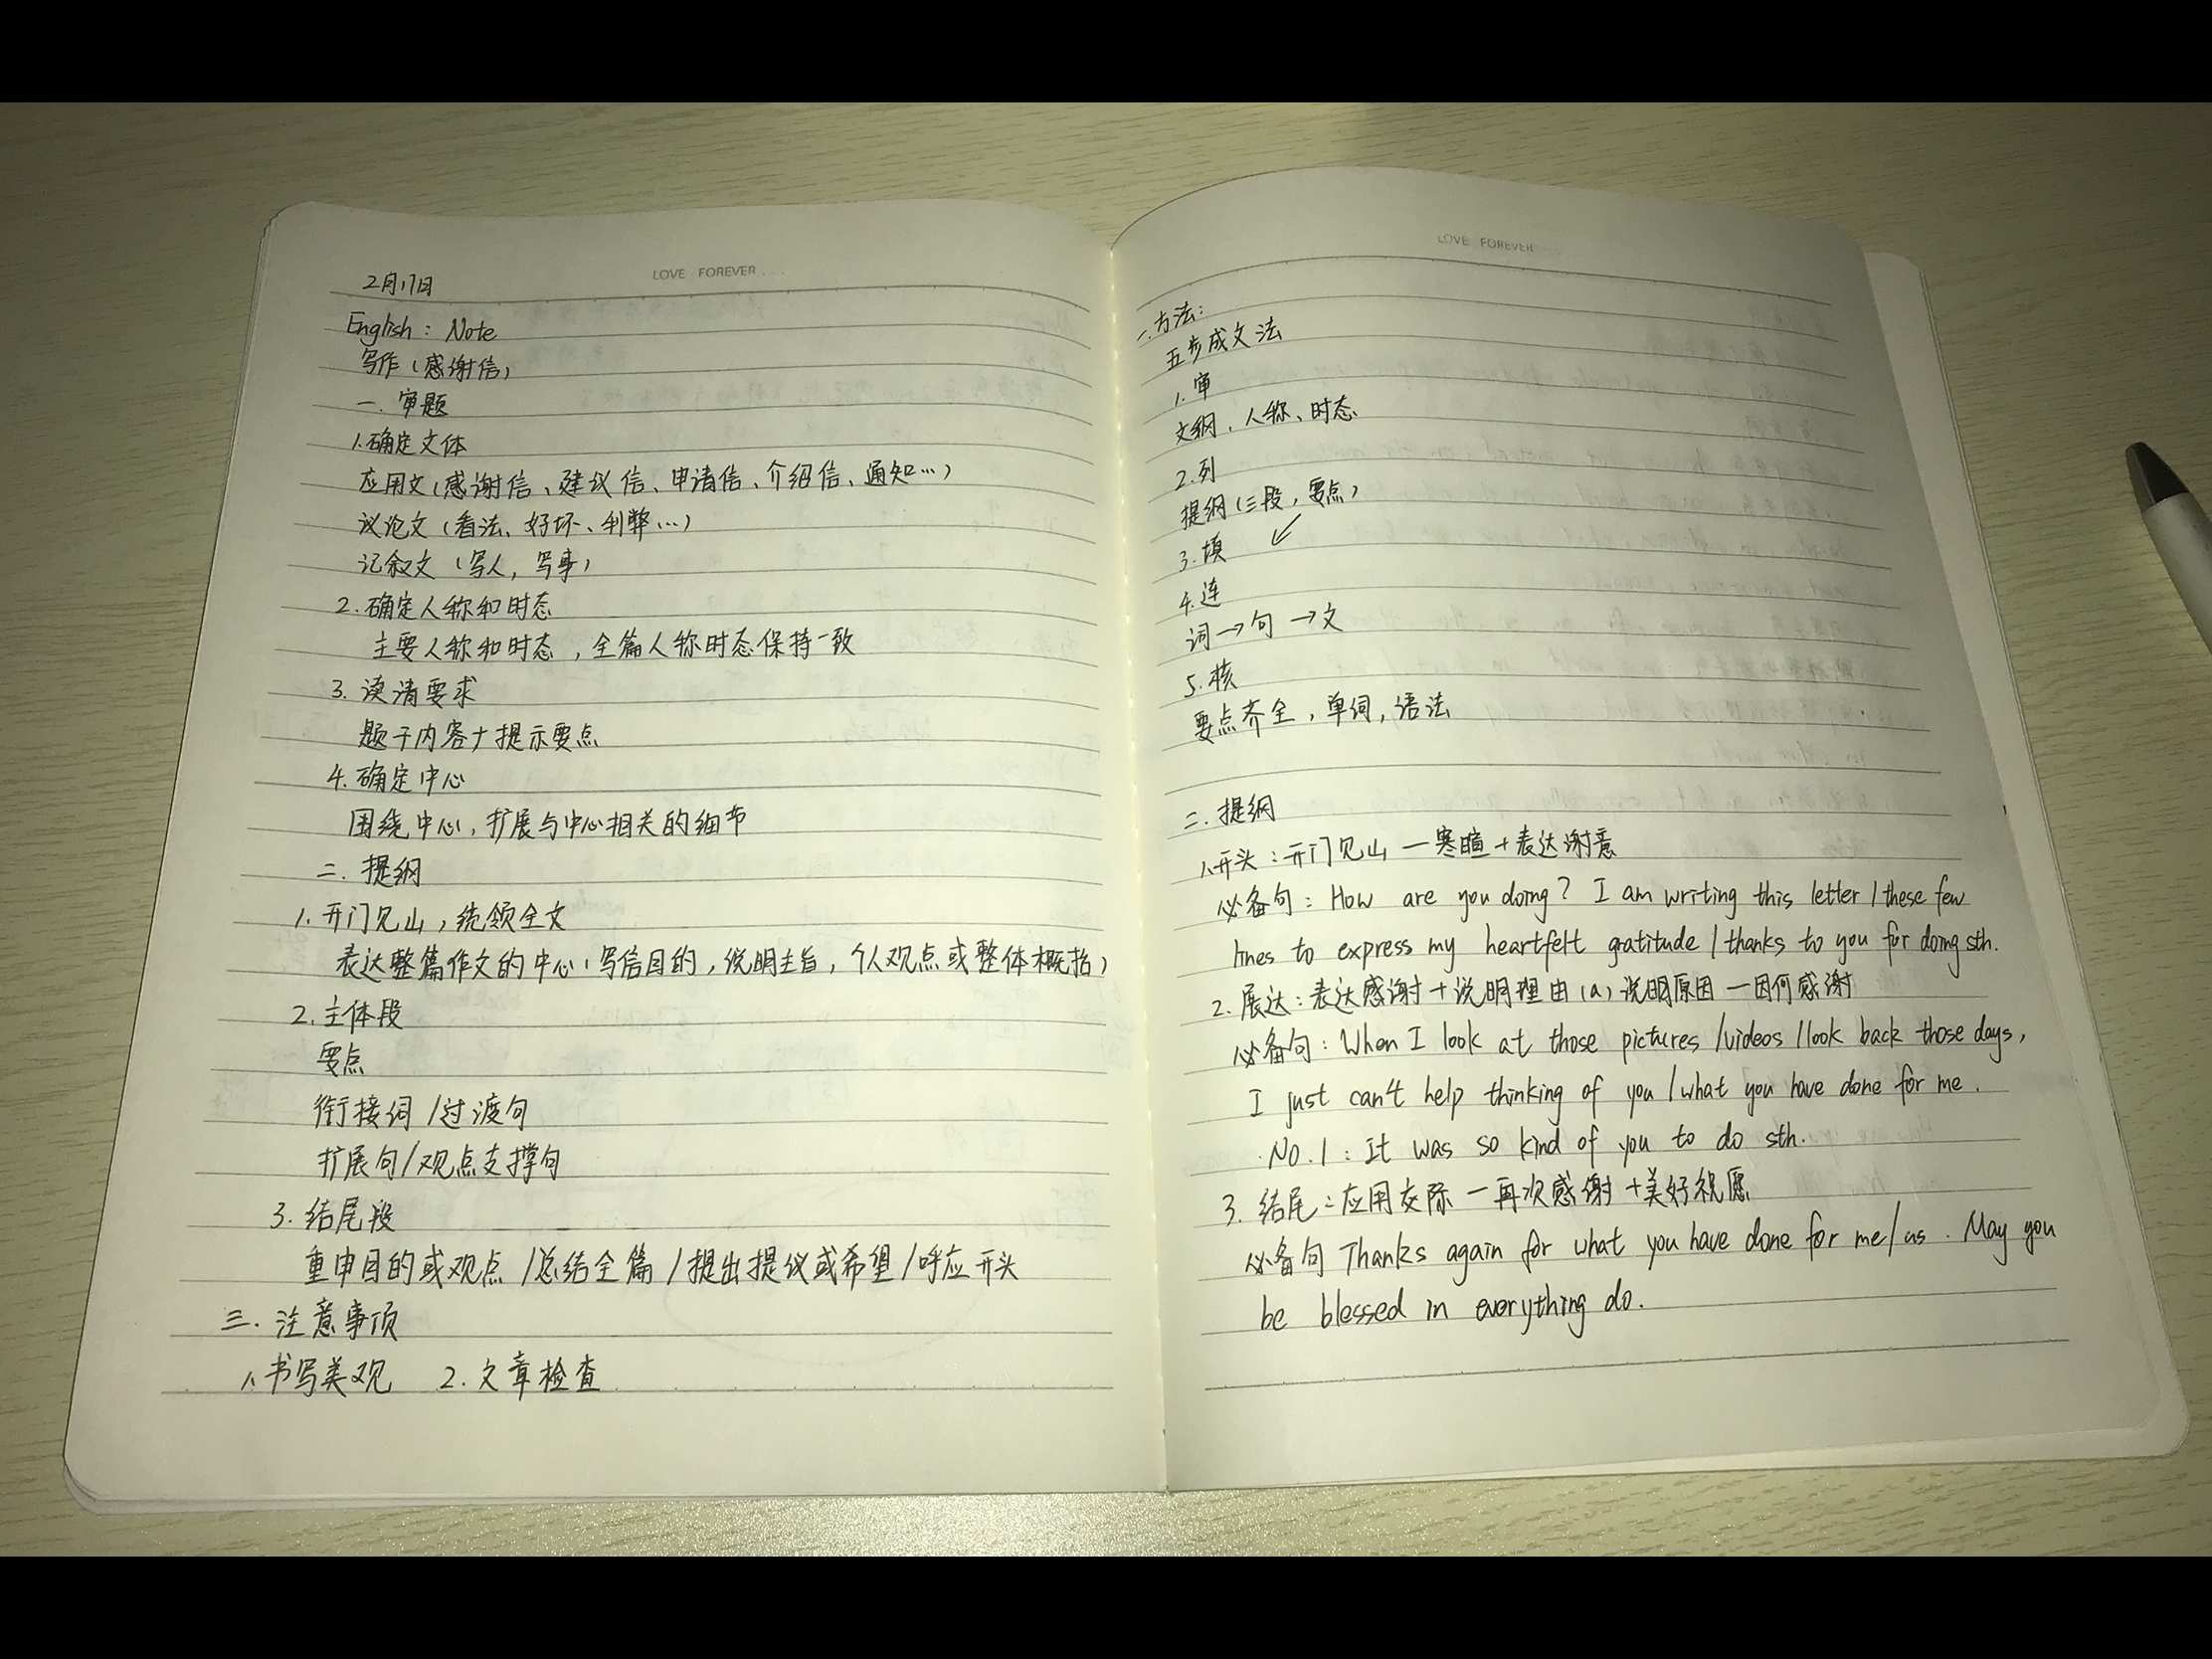 LOVE FOREVER....
2月17日
English: Note
写作(感谢信)
一. 审题
1.确定文体
应用文(感谢信、建议信、申请信、介绍信、通知…)
议论文(看法、好坏、利弊…)
记叙文(写人,写事)
2.确定人称和时态
主要人称和时态,全篇人称时态保持一致
3. 读清要求
题干内容+提示要点
4.确定中心
围绕中心,扩展与中心相关的细节
二. 提纲
1. 开门见山,统领全文
表达整篇作文的中心(写信目的,说明主旨,个人观点或整体概括)
2.主体段
要点
衔接词/过渡句
扩展句/观点支撑句
3. 结尾段
重申目的或观点/总结全篇/提出提议或希望/呼应开头
三. 注意事项
1.书写美观 2.文章检查
LOVE FOREVER....
一.方法:
五步成文法
1.审
文纲、人称、时态
2.列
提纲(三段,要点)
3.填 ↙
4.连
词→句→文
5.核
要点齐全,单词,语法
二.提纲
1.开头:开门见山—寒暄+表达谢意
必备句: How are you doing? I am writing this letter/these few
lines to express my heartfelt gratitude/thanks to you for doing sth.
2. 展达:表达感谢+说明理由(a)说明原因—因何感谢
必备句: When I look at those pictures/videos/look back those days,
I just can't help thinking of you/what you have done for me.
No.1: It was so kind of you to do sth.
3. 结尾:应用交际—再次感谢+美好祝愿
必备句 Thanks again for what you have done for me/us. May you
be blessed in everything do.